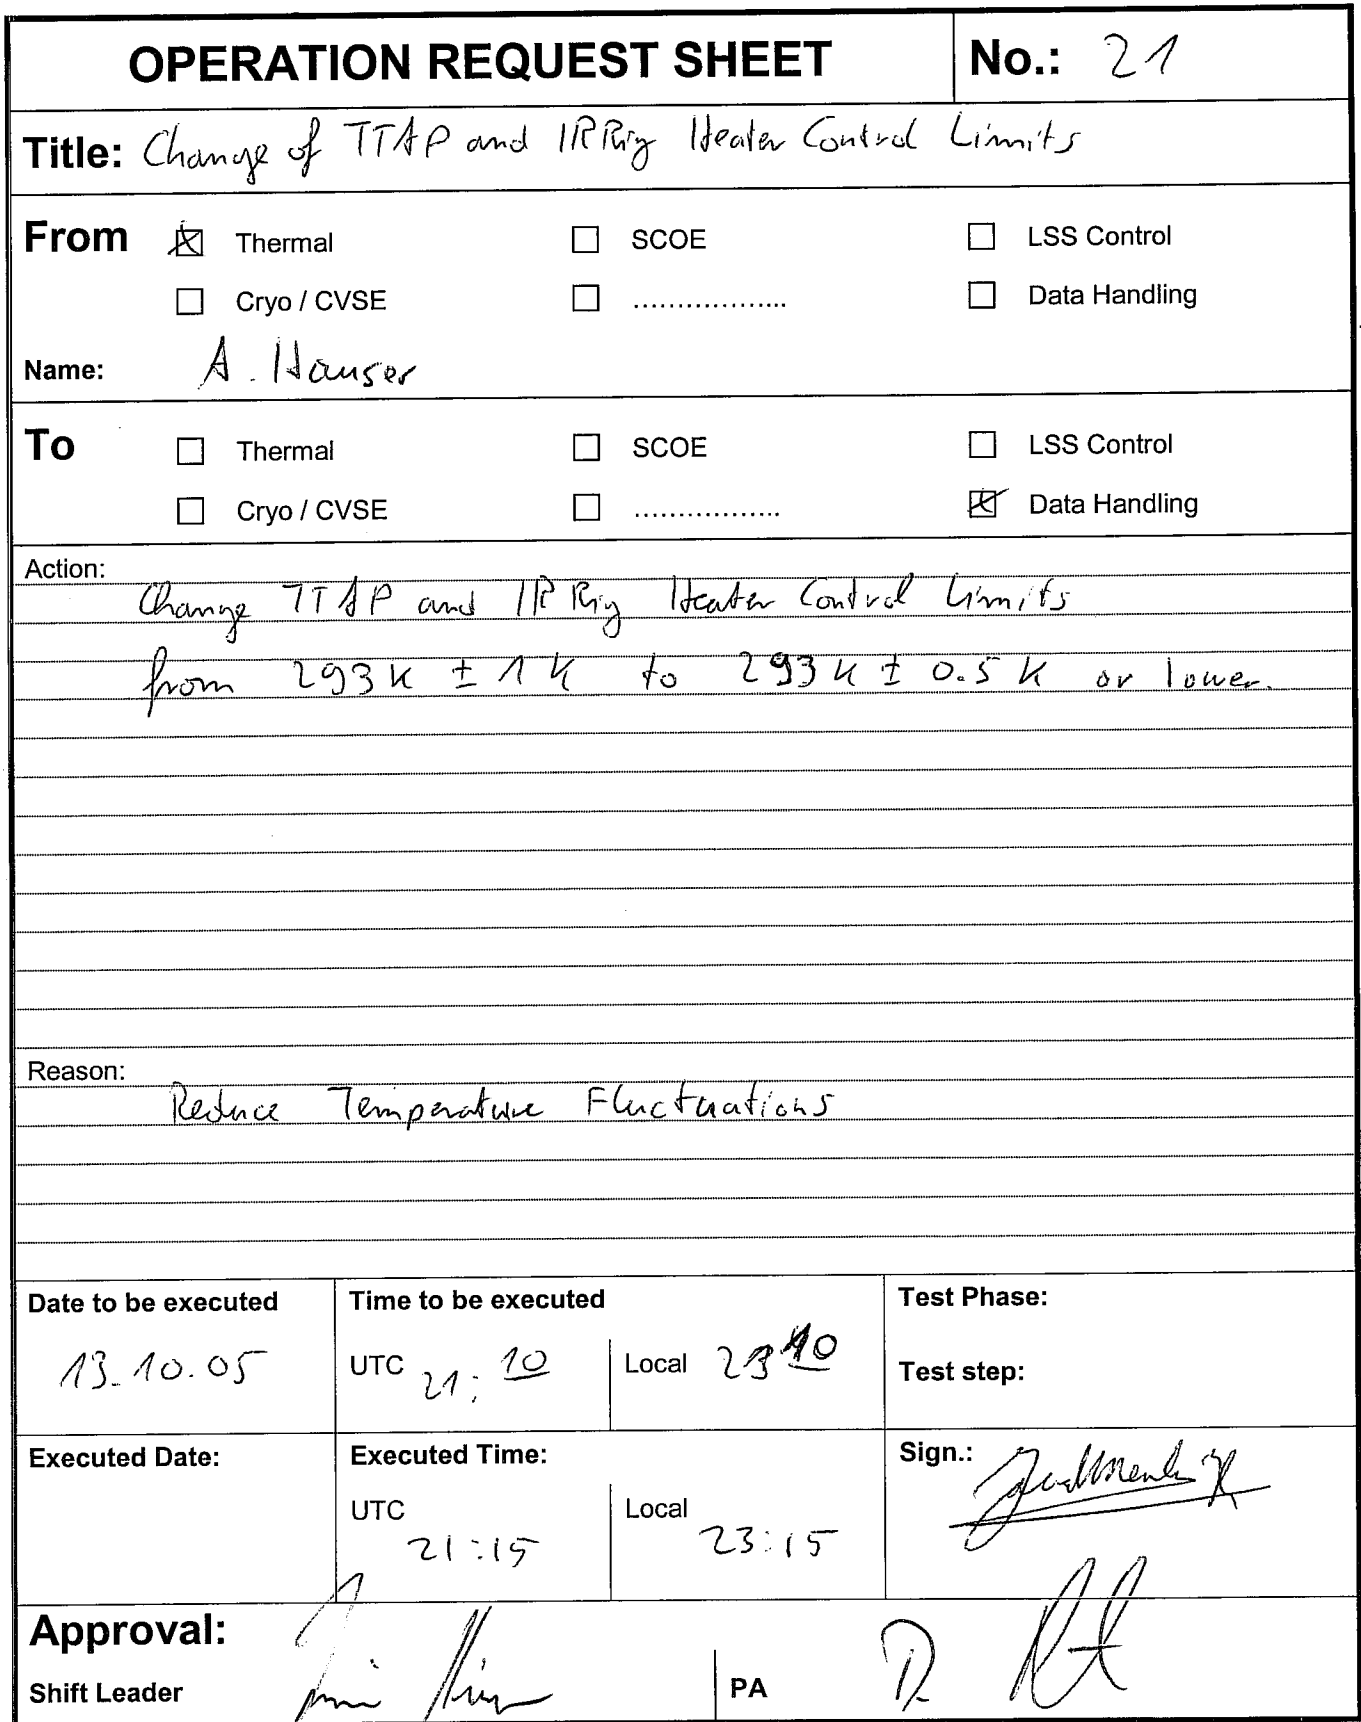 OPERATION REQUEST SHEET No.: 21
Title: Change of TTAP and IR Rig Heater Control Limits
From ☒ Thermal ☐ SCOE ☐ LSS Control
☐ Cryo / CVSE ☐ .................. ☐ Data Handling
Name: A. Hauser
To ☐ Thermal ☐ SCOE ☐ LSS Control
☐ Cryo / CVSE ☐ ................. ☒ Data Handling
Action:
Change TTAP and IR Rig Heater Control Limits
from 293 K ± 1 K to 293 K ± 0.5 K or lower.
Reason:
Reduce Temperature Fluctuations
Date to be executed Time to be executed Test Phase:
13.10.05 UTC 21:10 Local 23 10 Test step:
Executed Date: Executed Time: Sign.:
UTC 21:15 Local 23:15
Approval:
Shift Leader PA D.